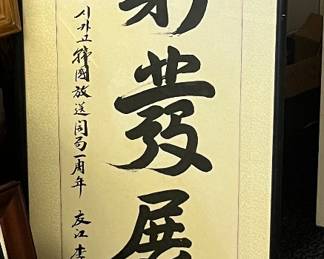 發展
시카고韓國放送開局一周年 友江 李